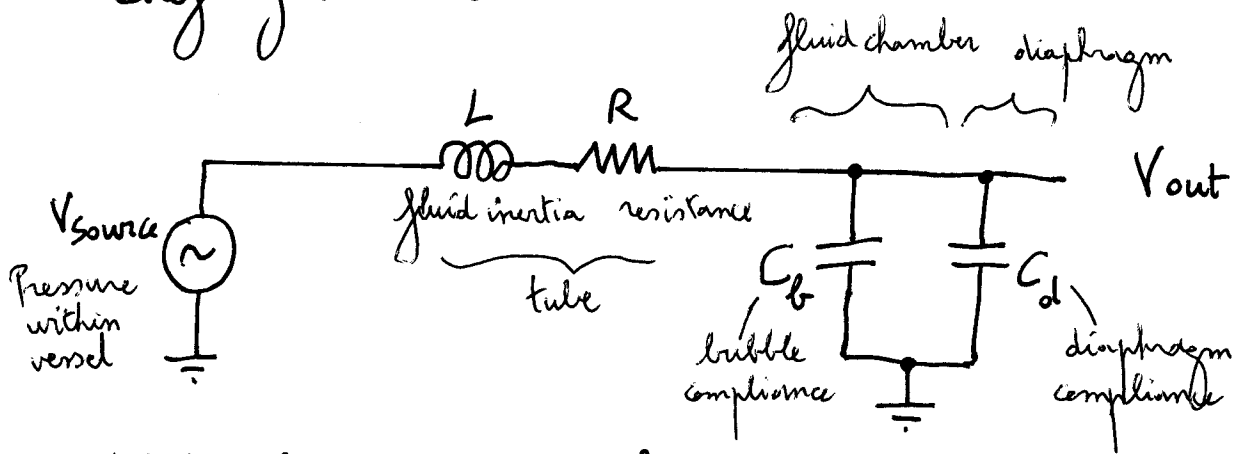 fluid chamber diaphragm
L R
V source
fluid inertia resistance
Vout
Pressure
within
vessel
tube
C b
C d
bubble
compliance
diaphragm
compliance